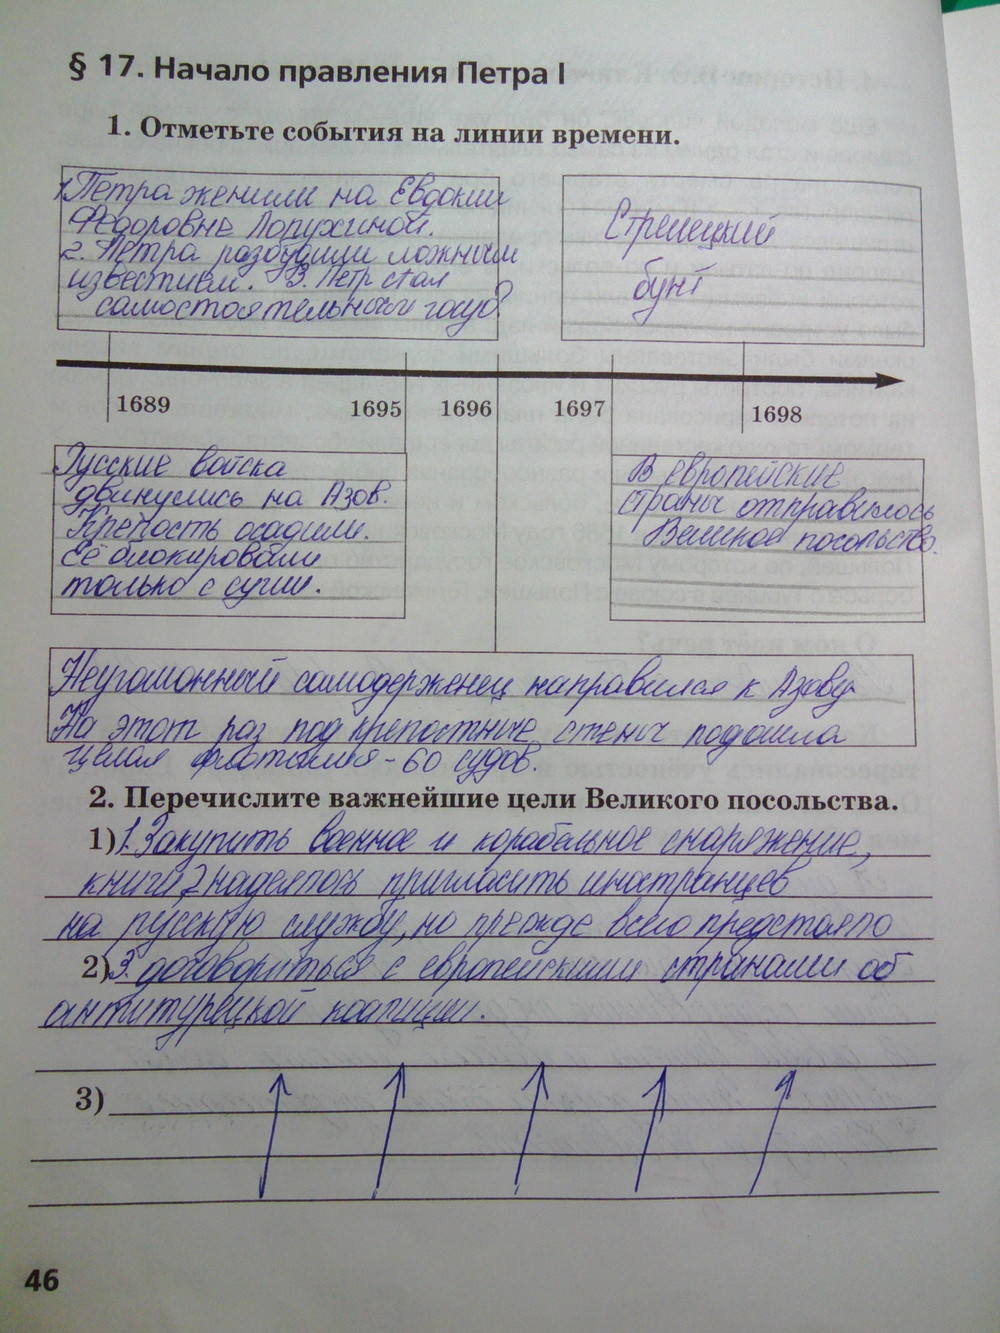 § 17. Начало правления Петра I
1. Отметьте события на линии времени.
1. Петра женили на Евдокии
Федоровне Лопухиной.
2. Петра разбудили ложным
известием. 3. Петр стал
самостоятельным госуд.
Стрелецкий
бунт
1689
1695
1696
1697
1698
Русские войска
двинулись на Азов.
Крепость осадили.
Её блокировали
только с суши.
В европейские
страны отправилось
Великое посольство.
Неугомонный самодержец направился к Азову
На этот раз под крепостные стены подошла
целая флотилия - 60 судов.
2. Перечислите важнейшие цели Великого посольства.
1) 1. Закупить военное и корабельное снаряжение,
книги, 2 надеялось пригласить иностранцев
на русскую службу, но прежде всего предстояло
2) 3. договориться с европейскими странами об
антитурецкой коалиции.
3)
46